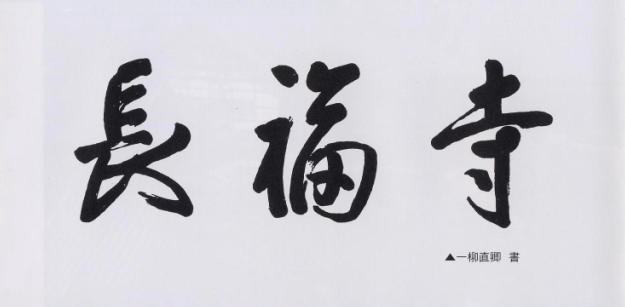 長福寺
▲一柳直卿 書